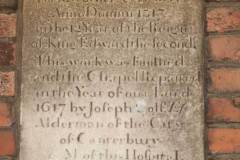 Anno Domini 1317
in the 12 Year of the Reign
of King Edward the Second
This work was Finished
and the Chapel Repaired
in the Year of our Lord
1617 by Joseph
Alderman of the City
of Canterbury
of this Hospital